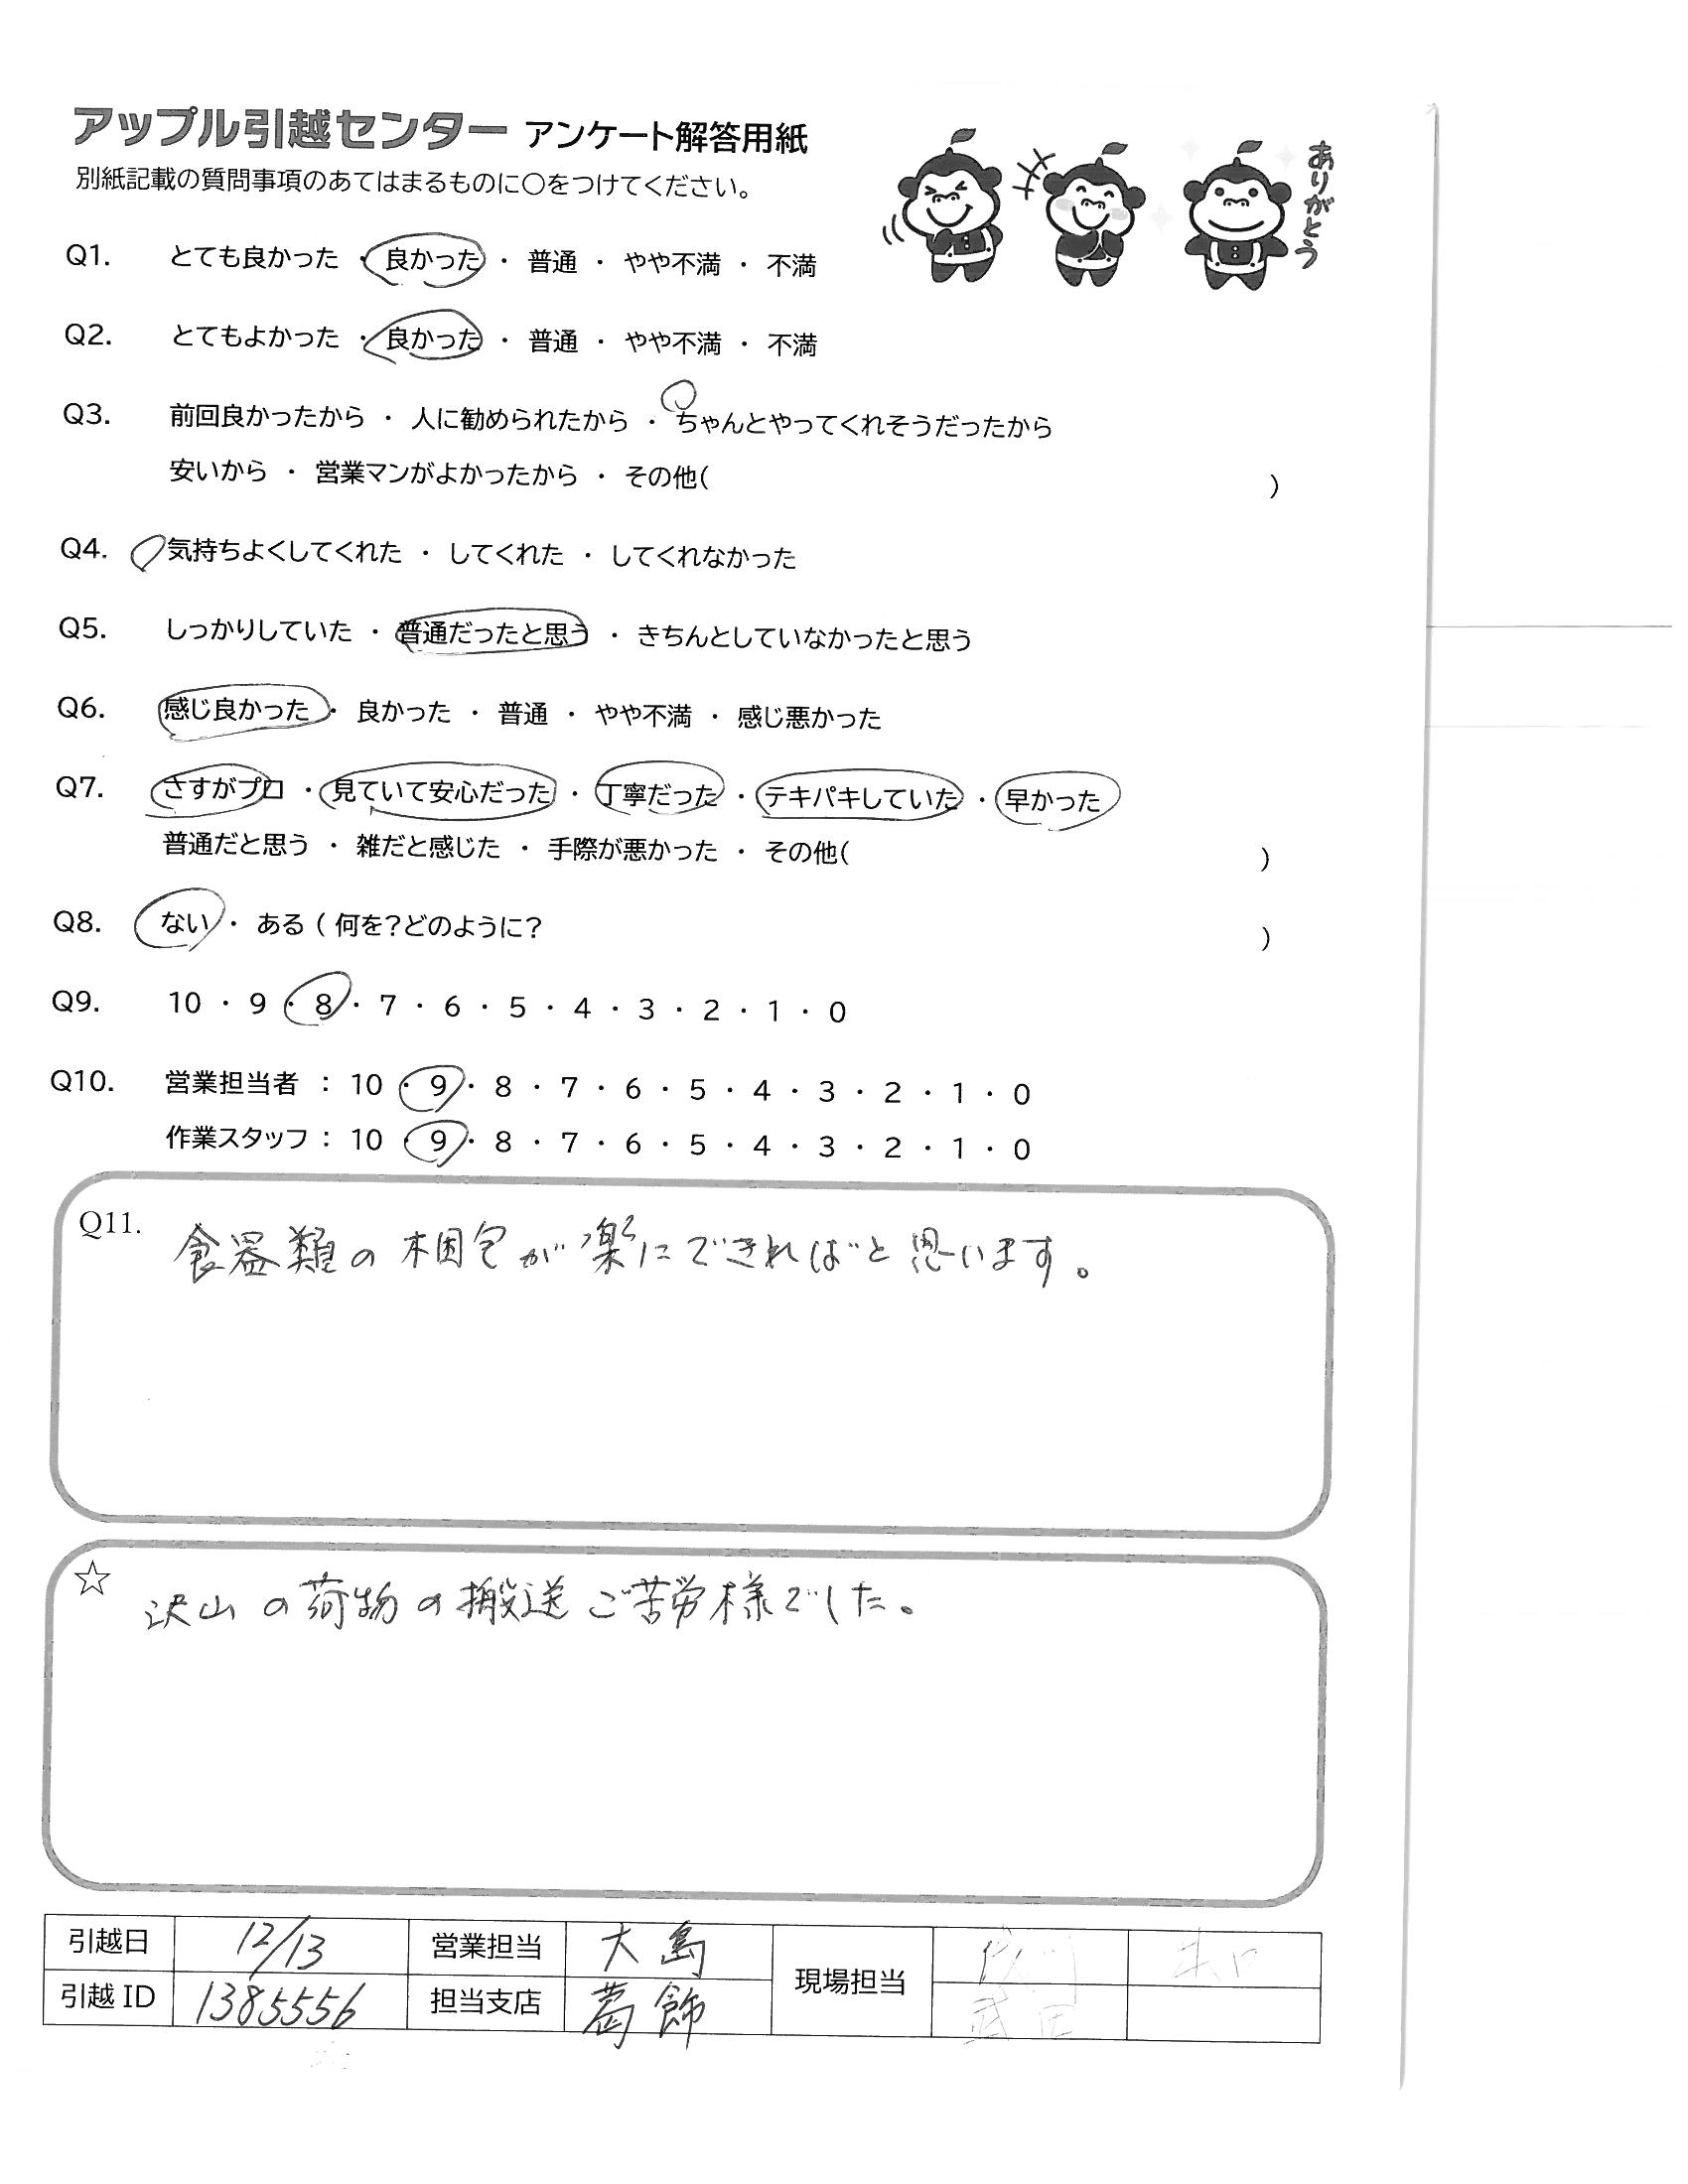 アップル引越センター アンケート解答用紙
別紙記載の質問事項のあてはまるものに○をつけてください。
ありがとう
Q1. とても良かった ・ 良かった ・ 普通 ・ やや不満 ・ 不満
Q2. とてもよかった ・ 良かった ・ 普通 ・ やや不満 ・ 不満
Q3. 前回良かったから ・ 人に勧められたから ・ ちゃんとやってくれそうだったから
安いから ・ 営業マンがよかったから ・ その他( )
Q4. 気持ちよくしてくれた ・ してくれた ・ してくれなかった
Q5. しっかりしていた ・ 普通だったと思う ・ きちんとしていなかったと思う
Q6. 感じ良かった ・ 良かった ・ 普通 ・ やや不満 ・ 感じ悪かった
Q7. さすがプロ ・ 見ていて安心だった ・ 丁寧だった ・ テキパキしていた ・ 早かった
普通だと思う ・ 雑だと感じた ・ 手際が悪かった ・ その他( )
Q8. ない ・ ある ( 何を?どのように? )
Q9. 10 ・ 9 ・ 8 ・ 7 ・ 6 ・ 5 ・ 4 ・ 3 ・ 2 ・ 1 ・ 0
Q10. 営業担当者 : 10 ・ 9 ・ 8 ・ 7 ・ 6 ・ 5 ・ 4 ・ 3 ・ 2 ・ 1 ・ 0
作業スタッフ : 10 ・ 9 ・ 8 ・ 7 ・ 6 ・ 5 ・ 4 ・ 3 ・ 2 ・ 1 ・ 0
Q11. 食器類の梱包が楽にできればと思います。
☆ 沢山の荷物の搬送ご苦労様でした。
引越日 12/13 営業担当 大島 現場担当
引越ID 1385556 担当支店 葛飾 武田